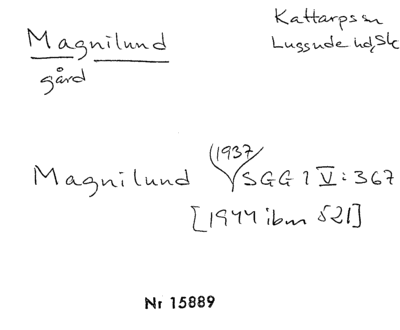 Magnilund
gård
Kattarps sn
Luggude hd, Sk
Magnilund (1937) SGG 1 V: 367
[1944 ibm 521]
Nr 15889